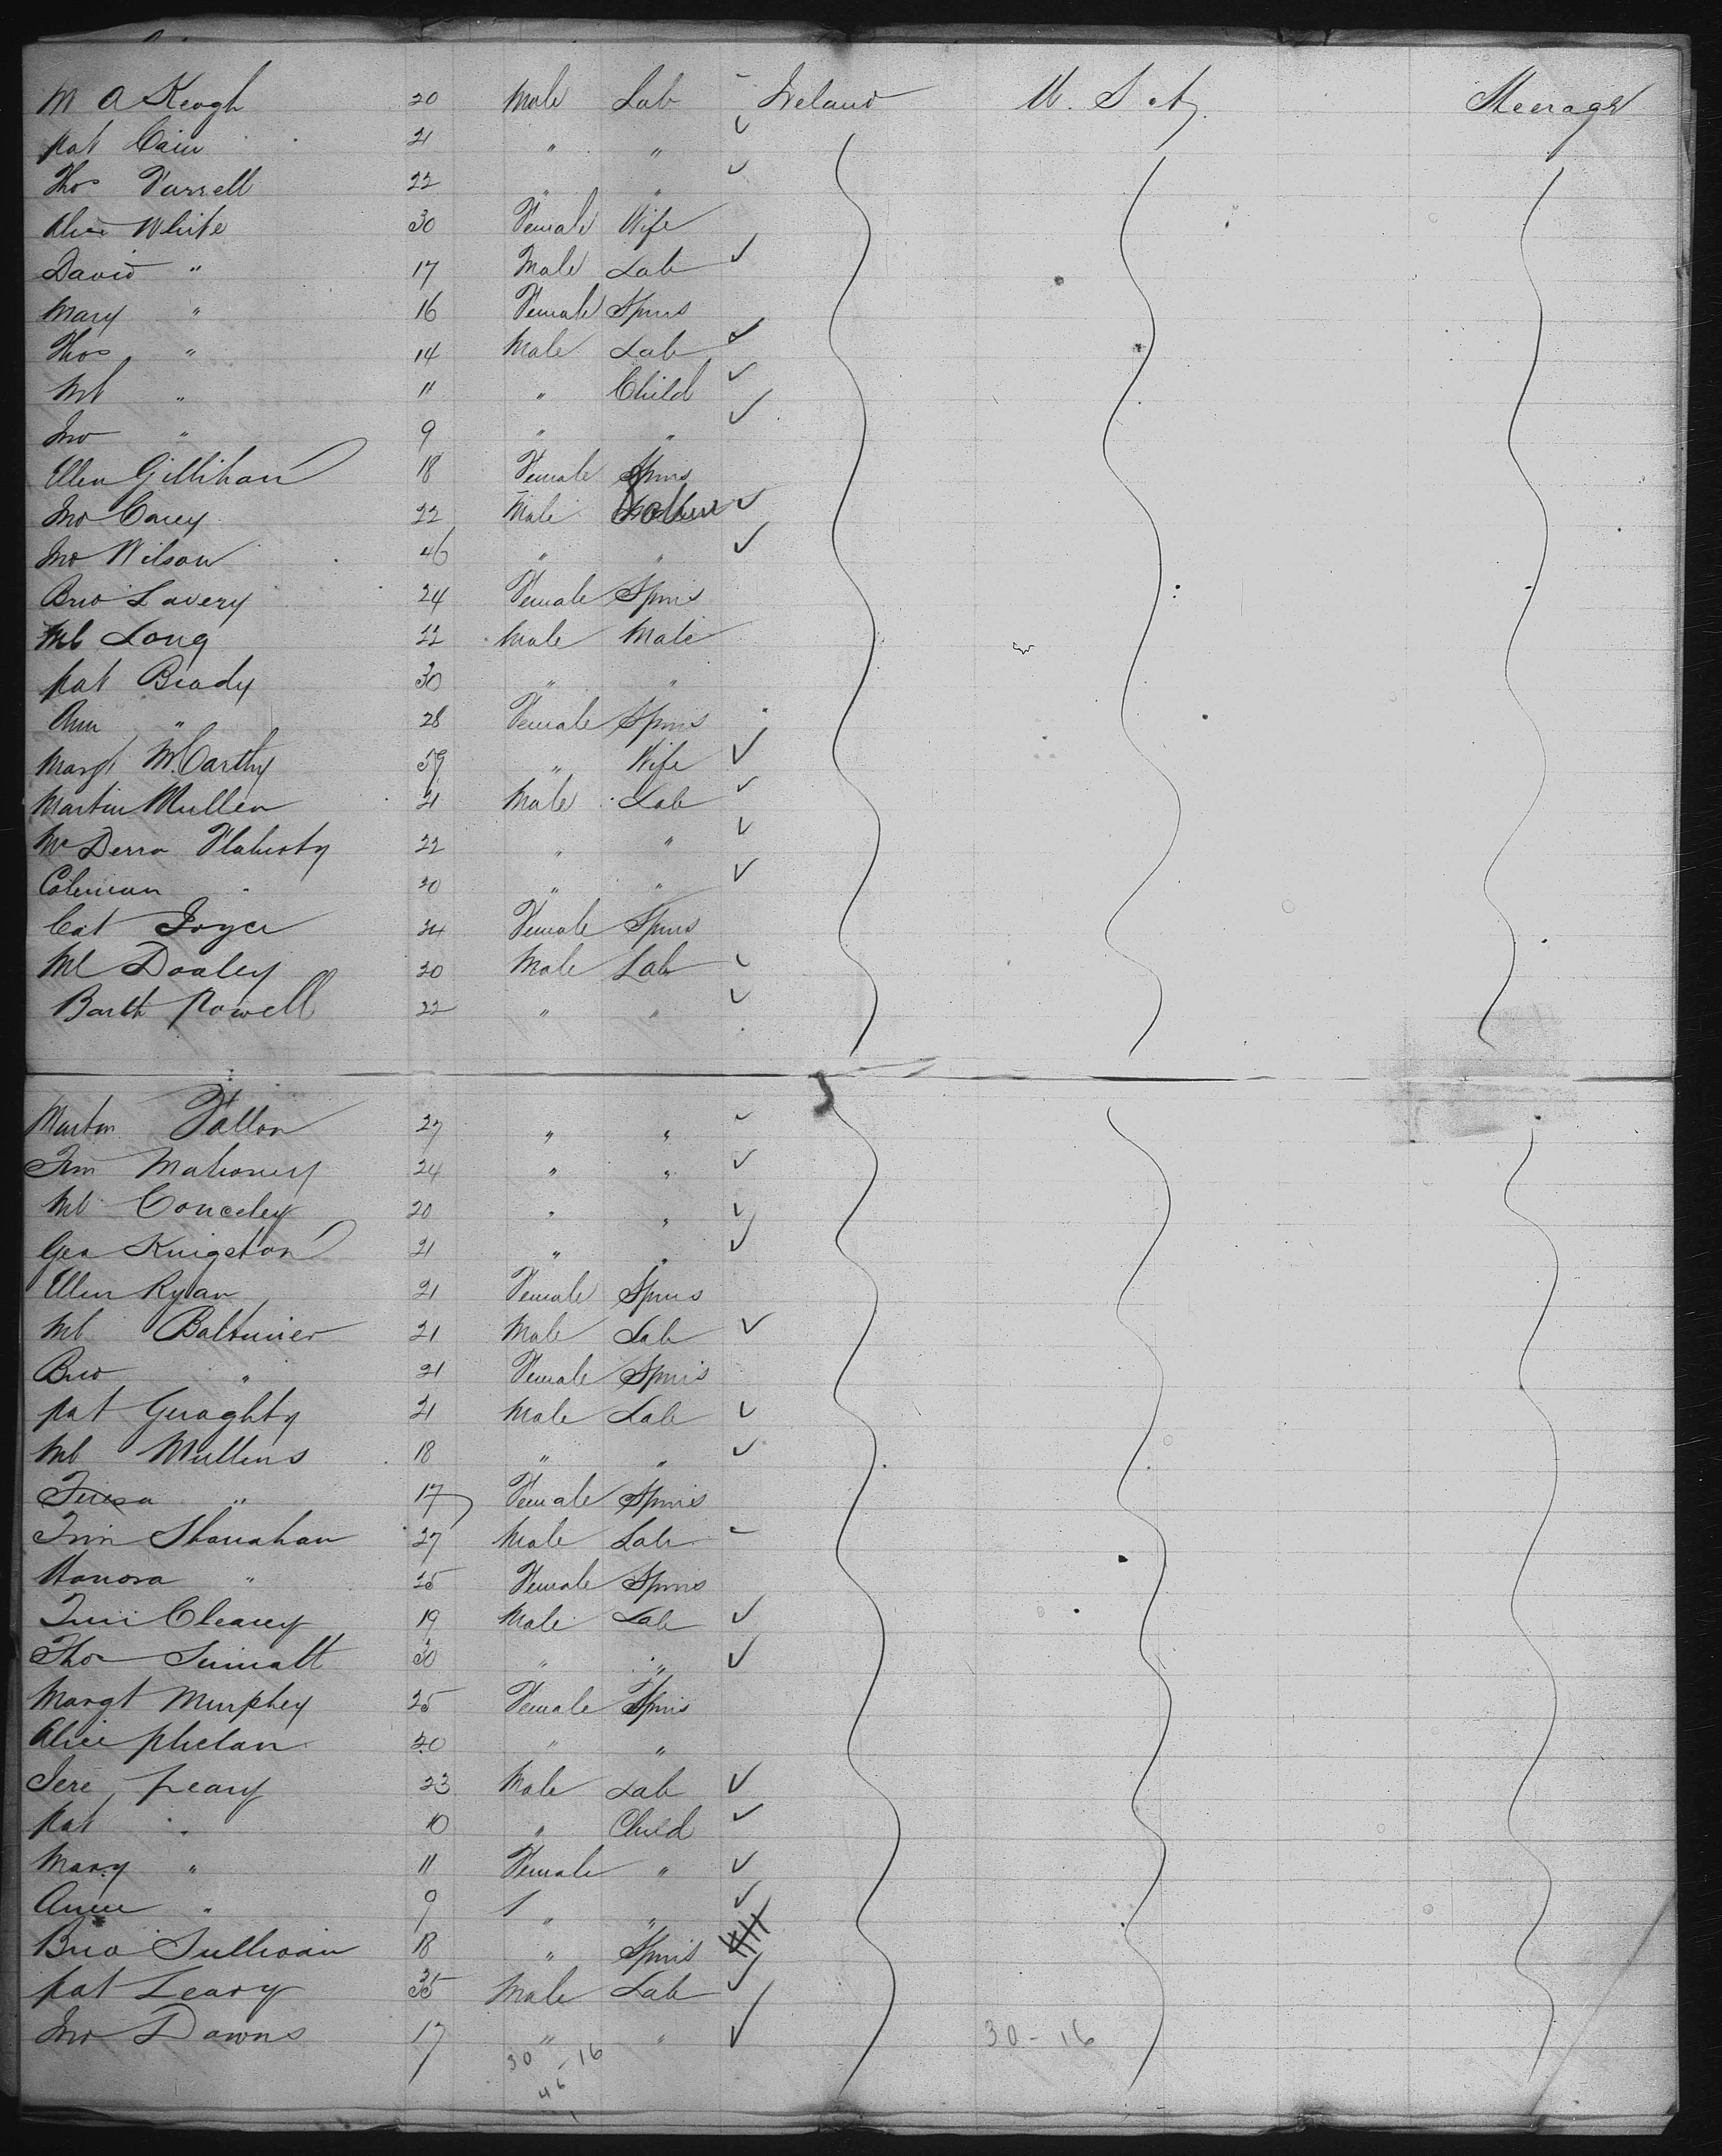 M A Keogh 20 Male Lab Ireland U. S. A. Steerage
Pat Cain 21 " "
Thos Farrell 22 " "
Alice White 30 Female Wife
David " 17 Male Lab
Mary " 16 Female Spins
Thos " 14 Male Lab
Ml " 11 " Child
Jno " 9 " "
Ellen Gillihan 18 Female Spins
Jno Carey 22 Male
Jno Wilson 46 " "
Brid Lavery 24 Female Spins
Ml Long 22 Male Male
Pat Brady 30 " "
Ann " 28 Female Spins
Margt McCarthy 59 " Wife
Martin Mullen 21 Male Lab
McDerra Flaherty 22 " "
Coleman " 30 " "
Cat Joyce 24 Female Spins
Ml Dooley 20 Male Lab
Barth Powell 22 " "
Martin Fallon 27 " "
Tim Mahoney 24 " "
Ml Conceley 20 " "
Geo Kingston 21 " "
Ellen Ryan 21 Female Spins
Ml Baltimier 21 Male Lab
Brid " 21 Female Spins
Pat Geraghty 21 Male Lab
Ml Mullens 18 " "
Teresa " 17 Female Spins
Tim Shanahan 27 Male Lab
Hanora " 25 Female Spins
Tim Clearey 19 Male Lab
Thos 30 " "
Margt Murphey 25 Female Spins
Alice Phelan 20 " "
Jere Leary 23 Male Lab
Pat " 10 " Child
Mary " 11 Female "
Annie " 9 " "
Brid Sullivan 18 " Spins
Pat Leary 35 Male Lab
Jno Downs 17 " "
30 - 16 30 - 16
46